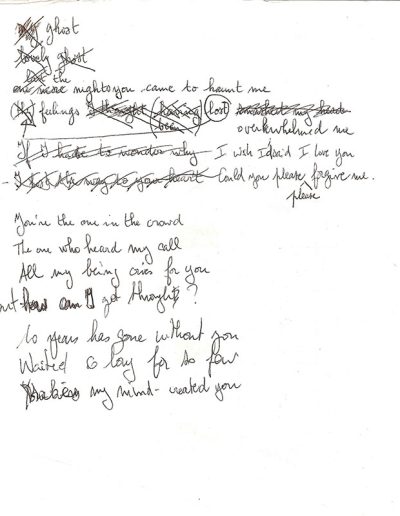 My ghost
lovely ghost
for the
one more nights you came to haunt me
(My) feelings I thought (having been) lost somewhat my
overwhelmed me
If I have to wonder why I wish I'd said I love you
- I lost the way to your heart Could you please forgive me.
please
You're the one in the crowd
The one who heard my call
All my being cries for you
but how can I got through?
10 years has gone without you
Waited so long for so few
my mind - created you